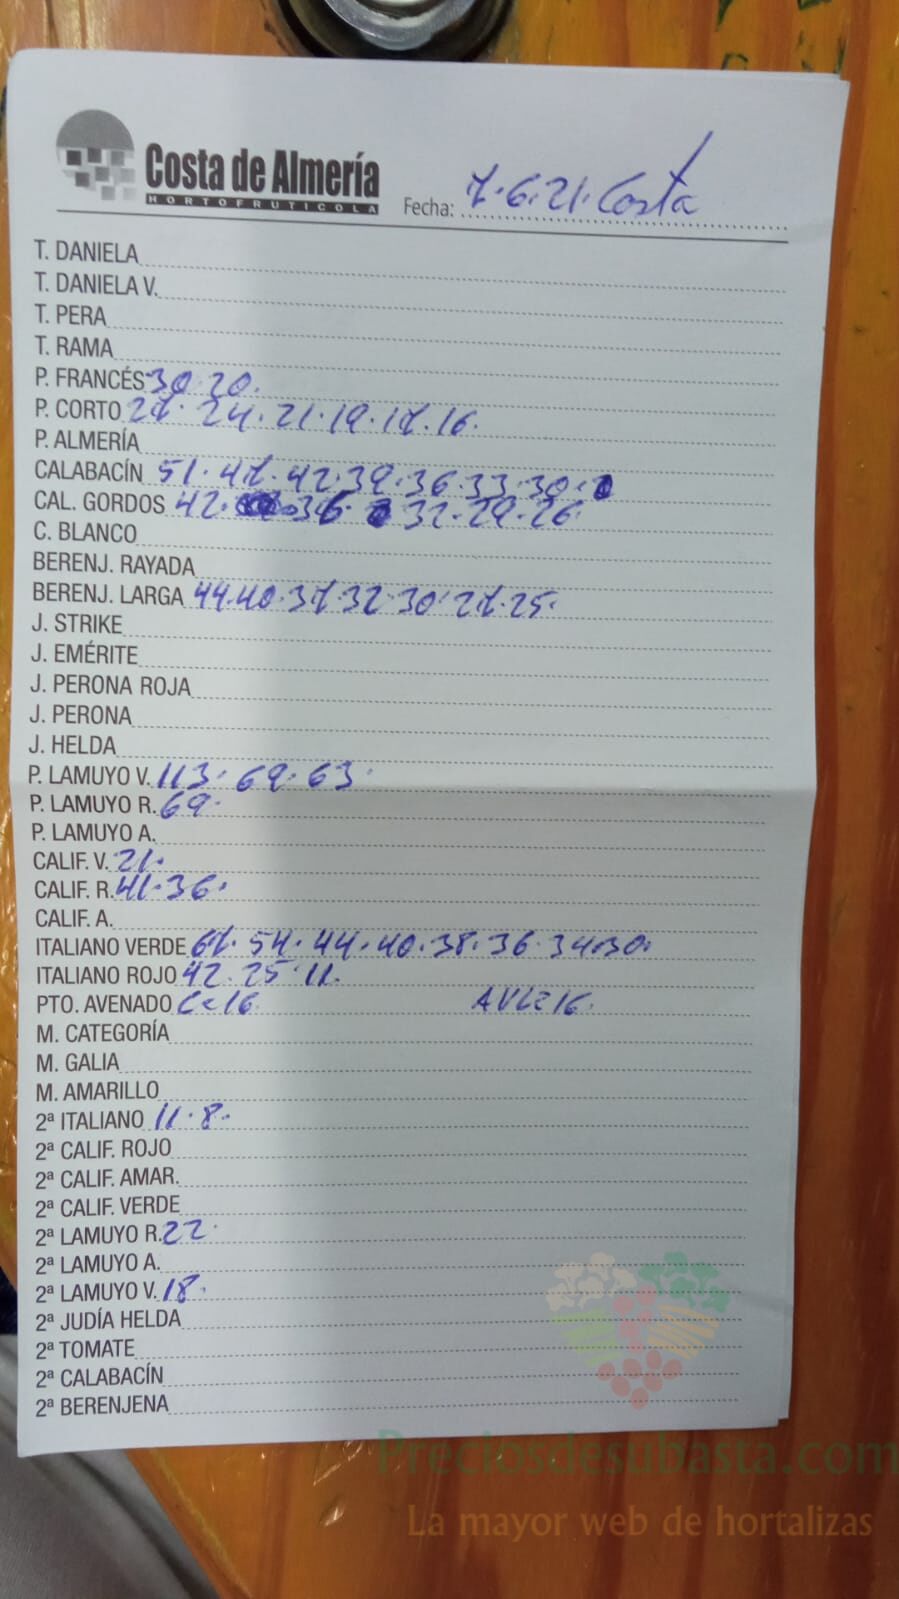 Costa de Almería
HORTOFRUTICOLA
Fecha: 7.6.21. Costa
T. DANIELA
T. DANIELA V.
T. PERA
T. RAMA
P. FRANCÉS 30.20.
P. CORTO 27. 24.21.19.17.16.
P. ALMERÍA
CALABACÍN 51.47.42.39.36.33.30.
CAL. GORDOS 42. 36 32.29.26.
C. BLANCO
BERENJ. RAYADA
BERENJ. LARGA 44.40.37.32 30.27.25.
J. STRIKE
J. EMÉRITE
J. PERONA ROJA
J. PERONA
J. HELDA
P. LAMUYO V. 113. 69.63.
P. LAMUYO R. 69.
P. LAMUYO A.
CALIF. V. 21.
CALIF. R. 41.36.
CALIF. A.
ITALIANO VERDE 67. 54. 44.40.38.36.34.30.
ITALIANO ROJO 42.25.11.
PTO. AVENADO C=16 AVL=16.
M. CATEGORÍA
M. GALIA
M. AMARILLO
2ª ITALIANO 11.8.
2ª CALIF. ROJO
2ª CALIF. AMAR.
2ª CALIF. VERDE
2ª LAMUYO R. 22.
2ª LAMUYO A.
2ª LAMUYO V. 18.
2ª JUDÍA HELDA
2ª TOMATE
2ª CALABACÍN
2ª BERENJENA
Preciosdesubasta.com
La mayor web de hortalizas